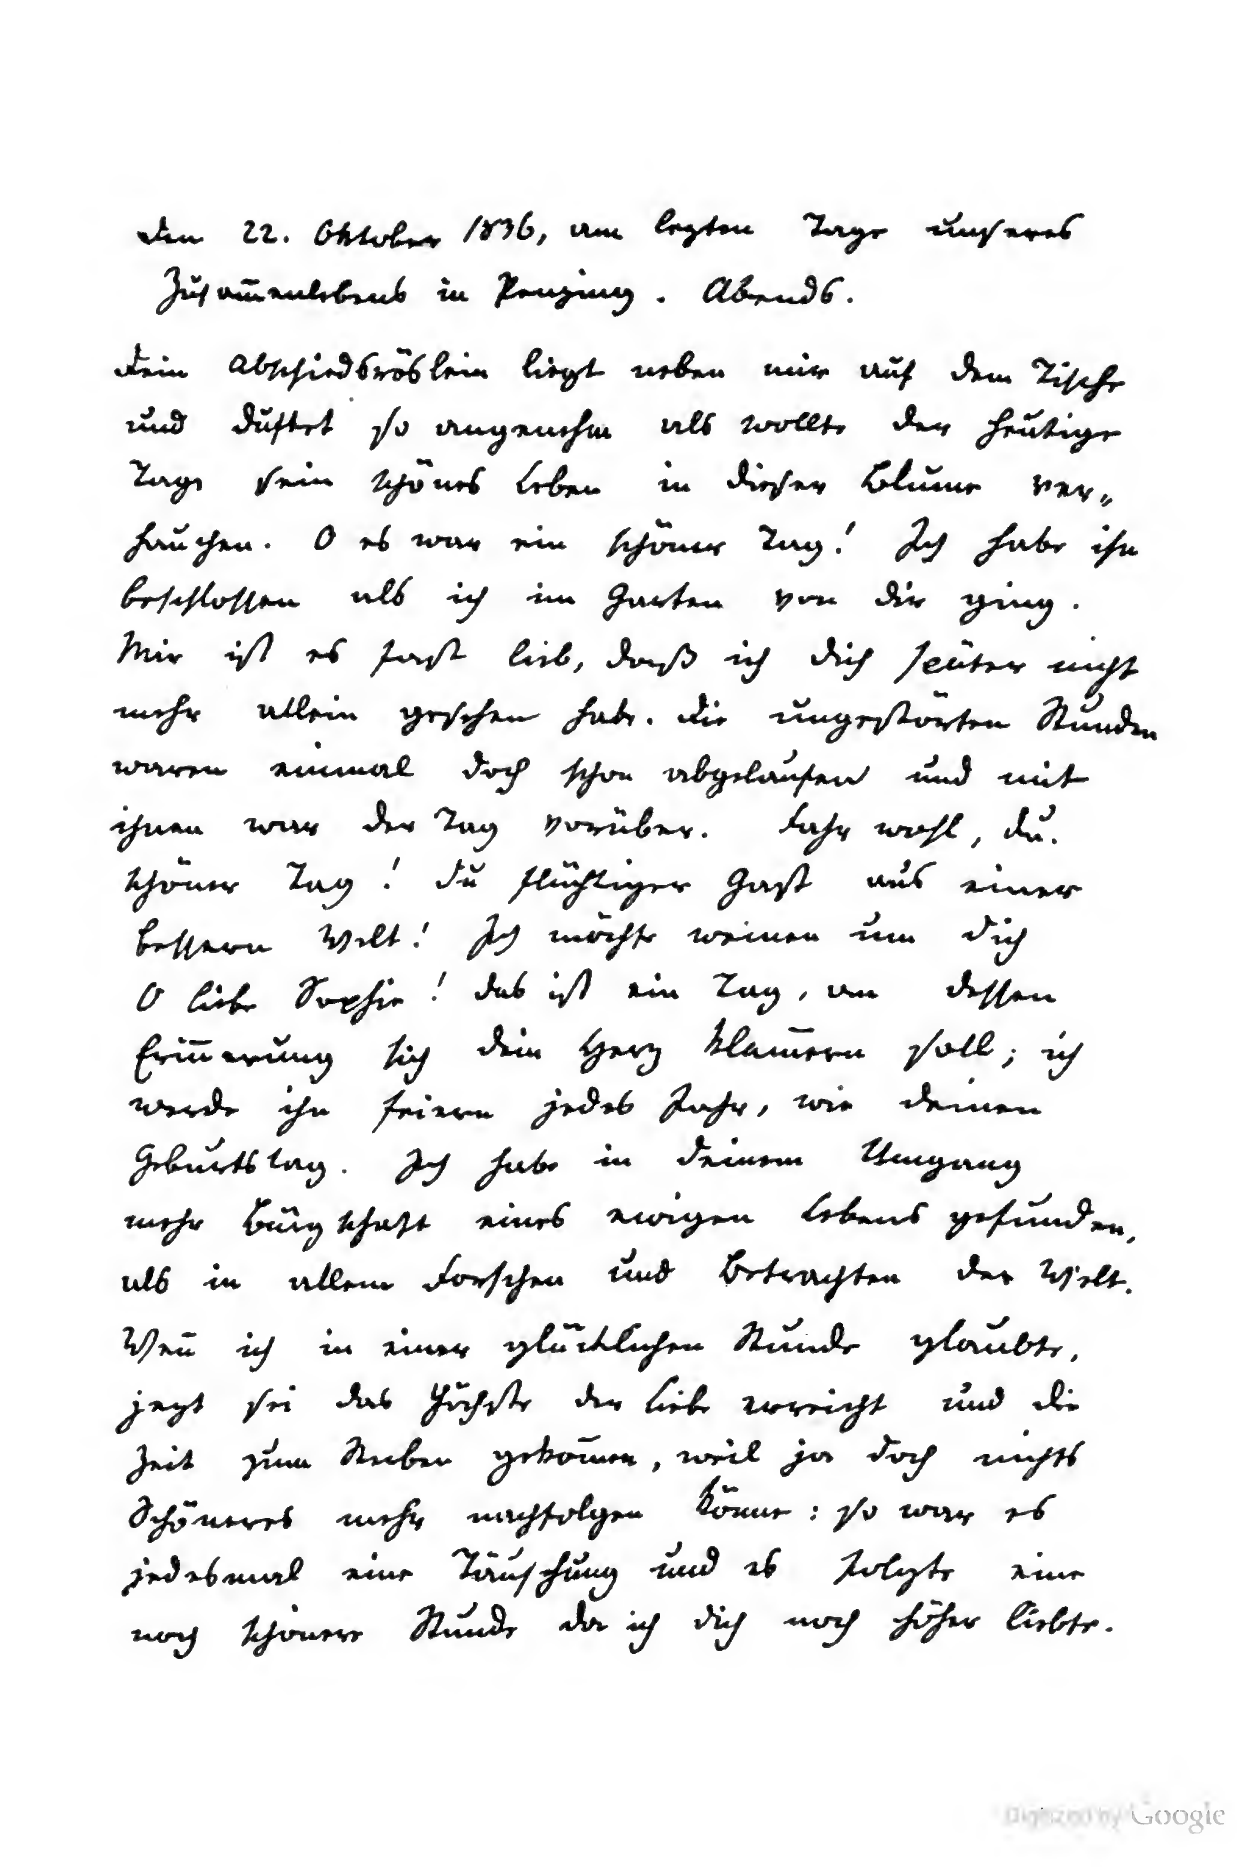 Den 22. Oktober 1836, am lezten Tage unseres
Zusam̅enlebens in Penzing. Abends.
Dein Abschiedsröslein liegt neben mir auf dem Tische
und duftet so angenehm als wollte der heutige
Tag sein schönes Leben in dieser Blume ver„
hauchen. O es war ein schöner Tag! Ich habe ihn
beschlossen als ich im Garten von dir ging.
Mir ist es fast lieb, daß ich dich später nicht
mehr allein gesehen habe. Die ungestörten Stunden
waren einmal doch schon abgelaufen und mit
ihnen war der Tag vorüber. Fahr wohl, du.
schöner Tag! du flüchtiger Gast aus einer
bessern Welt! Ich möchte weinen um dich
O liebe Sophie! das ist ein Tag, an dessen
Erin̅erung sich dein Herz klam̅ern soll; ich
werde ihn feiern jedes Jahr, wie deinen
Geburtstag. Ich habe in deinem Umgang
mehr Bürgschaft eines ewigen Lebens gefunden,
als in allem Forschen und Betrachten der Welt.
Wen̅ ich in einer glücklichen Stunde glaubte,
jezt sei das Höchste der Liebe erreicht und die
Zeit zum Sterben gekom̅en, weil ja doch nichts
Schöneres mehr nachfolgen könne: so war es
jedesmal eine Täuschung und es folgte eine
noch schönere Stunde da ich dich noch höher liebte.
Digitized by Google